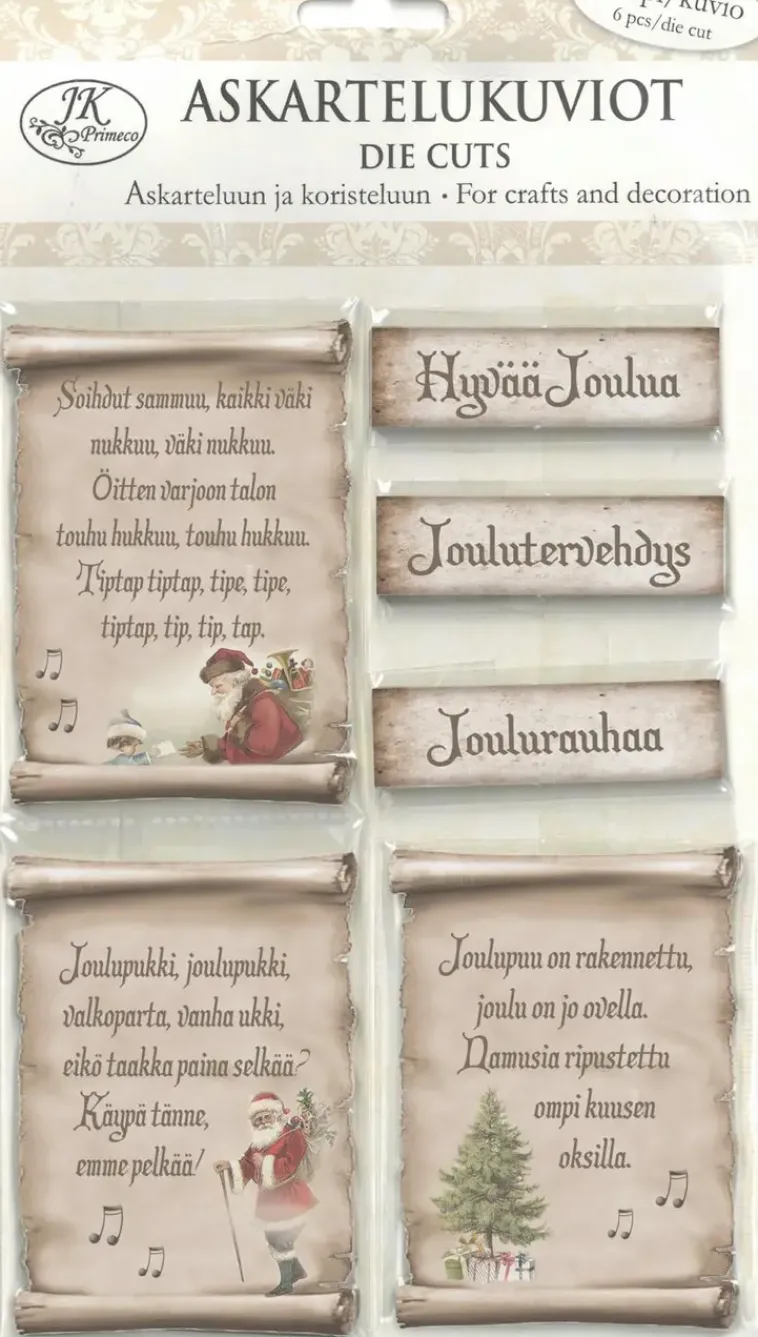 6 pcs/die cut
JK
Primeco
ASKARTELUKUVIOT
DIE CUTS
Askarteluun ja koristeluun • For crafts and decoration
Soihdut sammuu, kaikki väki
nukkuu, väki nukkuu.
Öitten varjoon talon
touhu hukkuu, touhu hukkuu.
Tiptap tiptap, tipe, tipe,
tiptap, tip, tip, tap.
Hyvää Joulua
Joulutervehdys
Joulurauhaa
Joulupukki, joulupukki,
valkoparta, vanha ukki,
eikö taakka paina selkää?
Käypä tänne,
emme pelkää!
Joulupuu on rakennettu,
joulu on jo ovella.
Namusia ripustettu
ompi kuusen
oksilla.